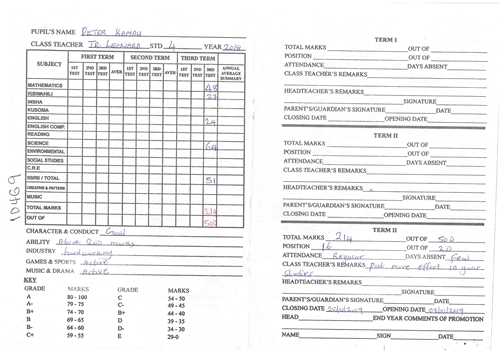 PUPIL'S NAME Peter Kamau
CLASS TEACHER Tr. Leonara STD 4 YEAR 2018
SUBJECT FIRST TERM SECOND TERM THIRD TERM
1ST TEST 2ND TEST 3RD TEST AVER 1ST TEST 2ND TEST 3RD TEST AVER 1ST TEST 2ND TEST 3RD TEST ANNUAL AVERAGE SUMMARY
MATHEMATICS 48
KISWAHILI 27
INSHA
KUSOMA
ENGLISH 24
ENGLISH COMP.
READING
SCIENCE 64
ENVIRONMENTAL
SOCIAL STUDIES
C.R.E
SSRE / TOTAL 51
CREATIVE & PATTERN
MUSIC
TOTAL MARKS 214
OUT OF 500
10469
CHARACTER & CONDUCT Good
ABILITY Above 200 marks
INDUSTRY hardworking
GAMES & SPORTS Active
MUSIC & DRAMA Active
KEY
GRADE MARKS GRADE MARKS
A 80 - 100 C 54 - 50
A- 79 - 75 C- 49 - 45
B+ 74 - 70 B+ 44 - 40
B 69 - 65 D 39 - 35
B- 64 - 60 D- 34 - 30
C+ 59 - 55 E 29-0
TERM I
TOTAL MARKS OUT OF
POSITION OUT OF
ATTENDANCE DAYS ABSENT
CLASS TEACHER'S REMARKS
HEADTEACHER'S REMARKS
SIGNATURE
PARENT'S/GUARDIAN'S SIGNATURE DATE
CLOSING DATE OPENING DATE
TERM II
TOTAL MARKS OUT OF
POSITION OUT OF
ATTENDANCE DAYS ABSENT
CLASS TEACHER'S REMARKS
HEADTEACHER'S REMARKS
SIGNATURE
PARENT'S/GUARDIAN'S SIGNATURE DATE
CLOSING DATE OPENING DATE
TERM II
TOTAL MARKS 214 OUT OF 500
POSITION 16 OUT OF 20
ATTENDANCE Regular DAYS ABSENT Few
CLASS TEACHER'S REMARKS Put more effort in your
studies
HEADTEACHER'S REMARKS
SIGNATURE
PARENT'S/GUARDIAN'S SIGNATURE DATE
CLOSING DATE OPENING DATE
HEAD END YEAR COMMENTS OF PROMOTION
NAME SIGN DATE